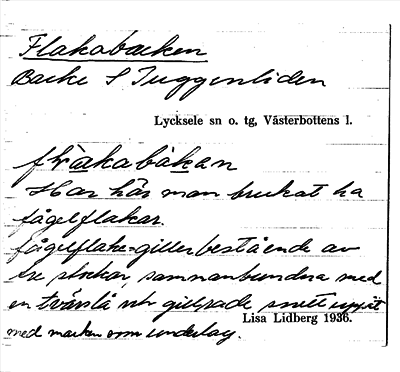 Flakabacken
Backe S Tuggenliden
Lycksele sn o. tg, Västerbottens l.
flakabàkan
Har här man brukat ha
fågelflakar.
fågelflake = giller bestående av
tre stockar, sammanbundna med
en tvärslå och gillrade snett uppåt
med marken som underlag.
Lisa Lidberg 1936.